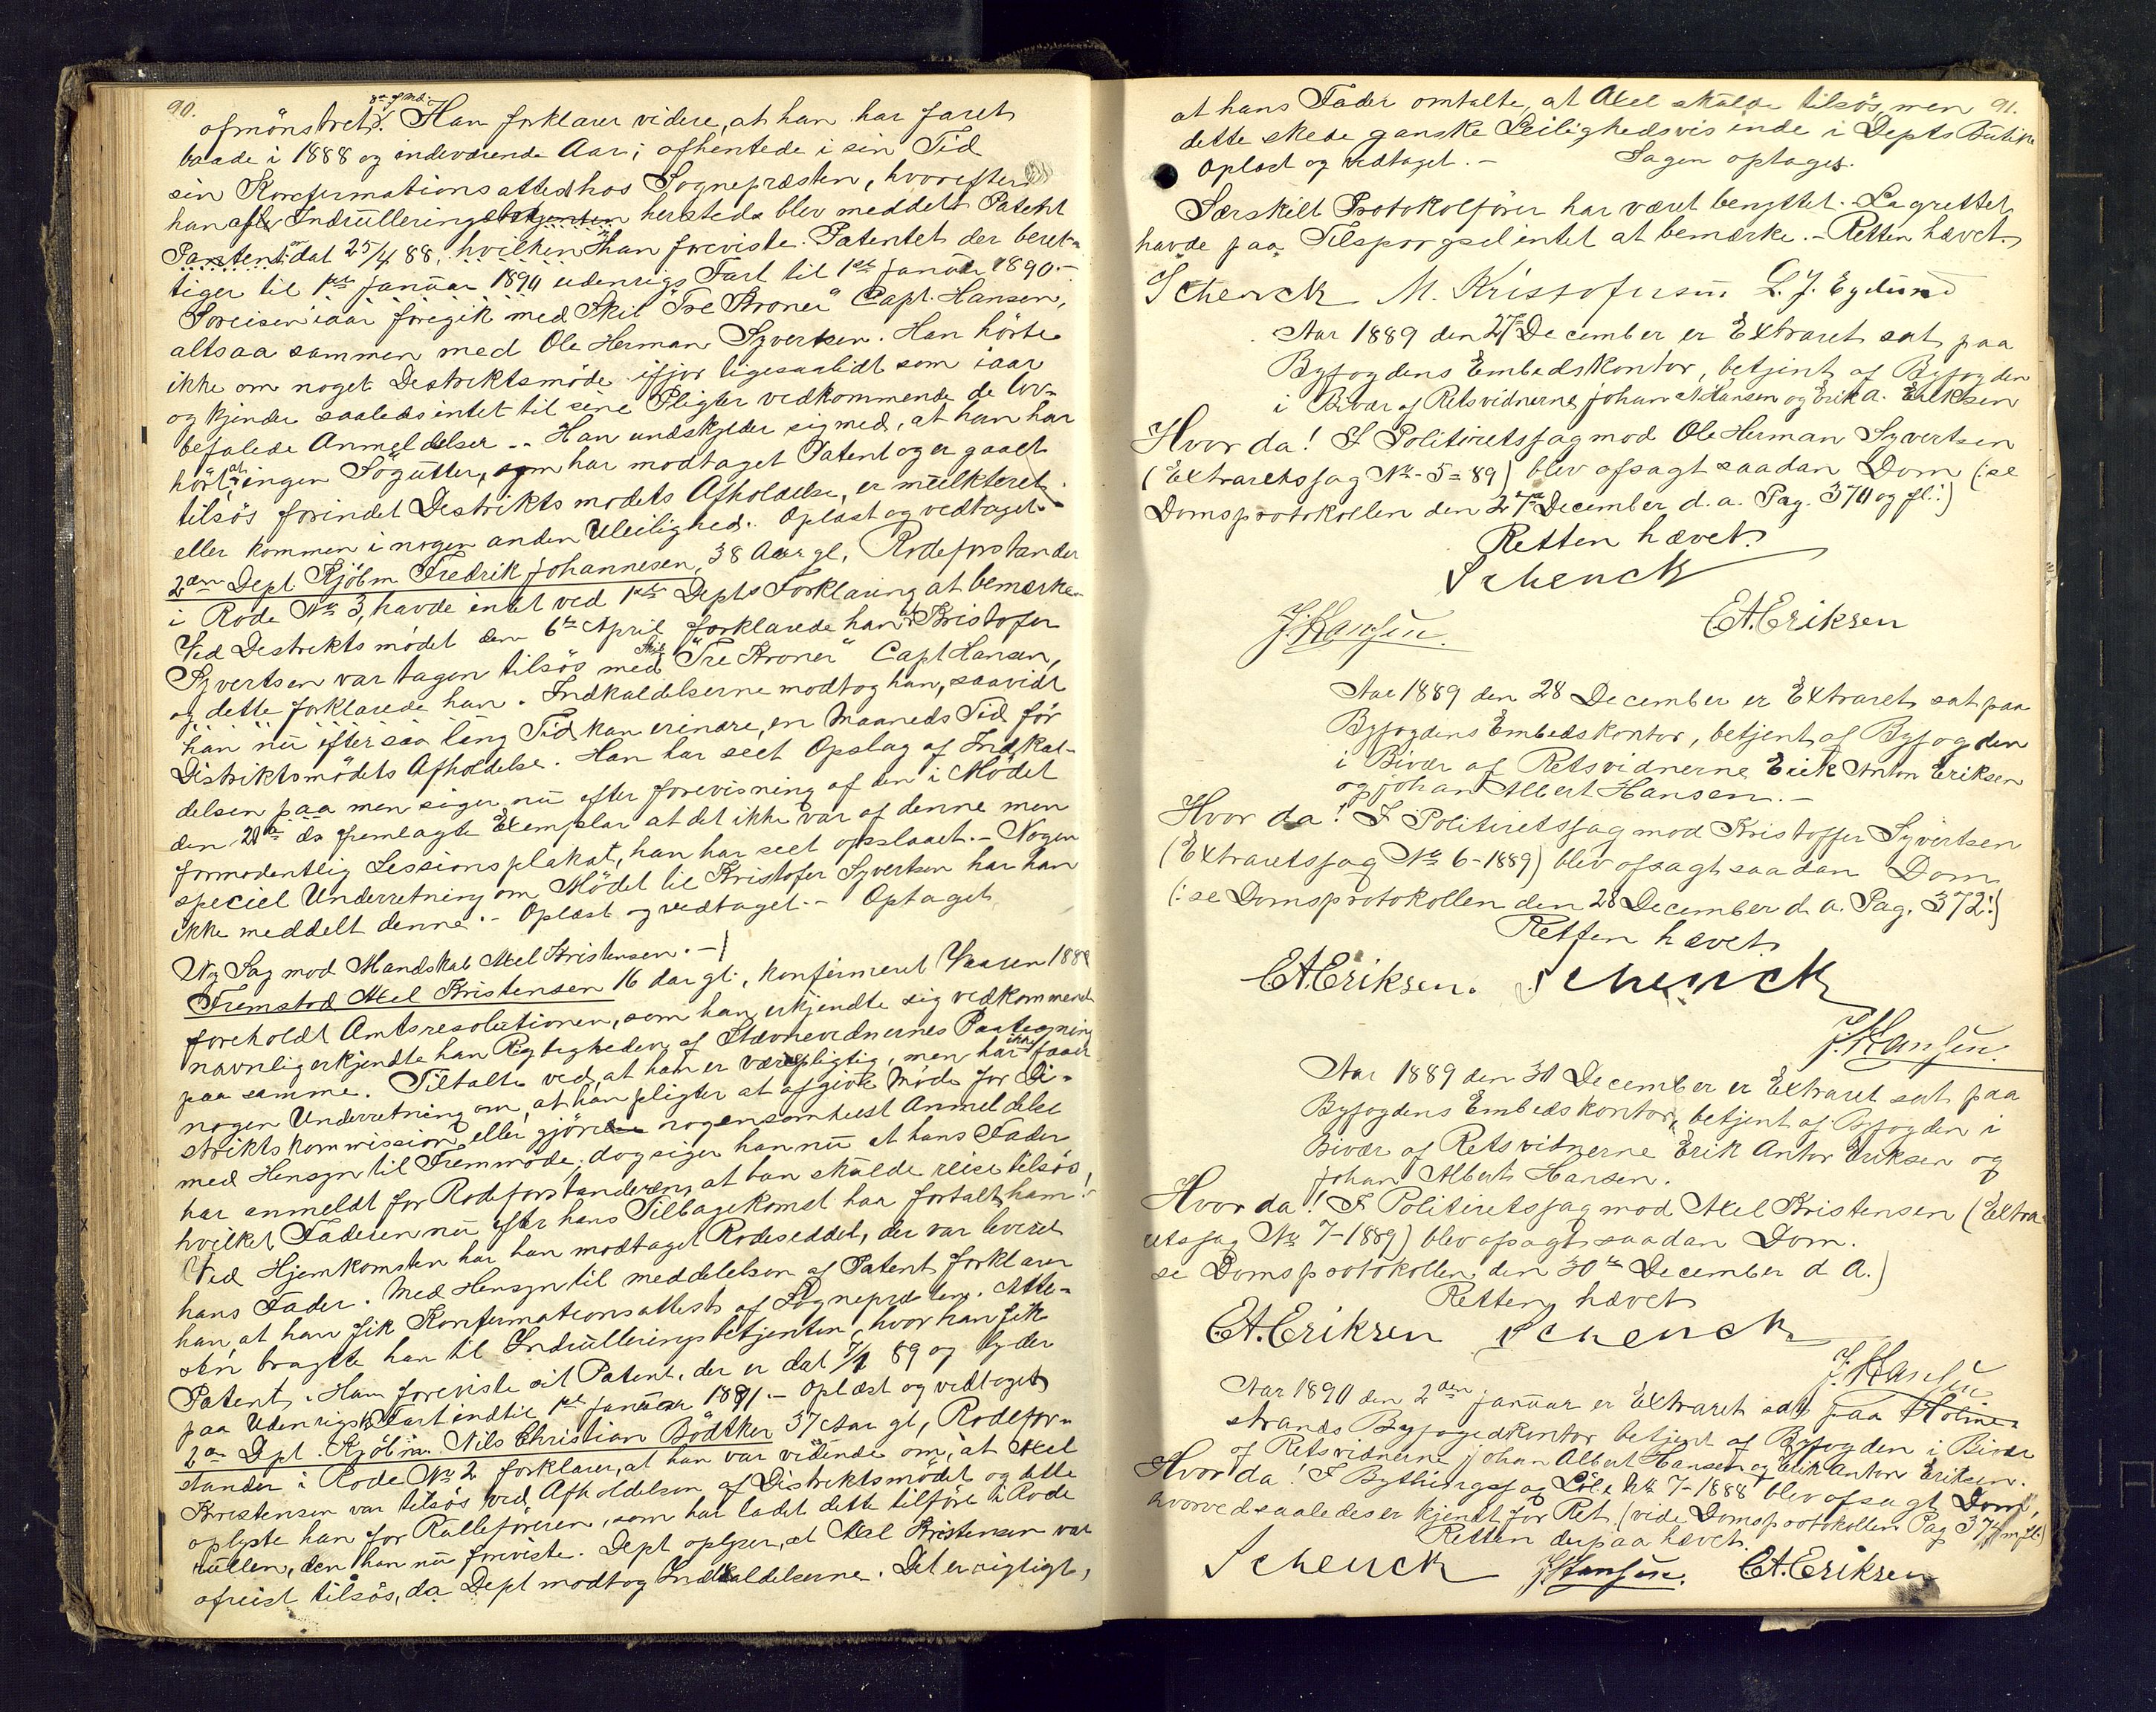 90.
afmönstret. Han forklarer videre, at han har faret
baade i 1888 og indeværende Aar; afhentede i sin Tid
sin Konfirmationsattest hos Sognepræsten, hvorefter
han efter Indrulleringsbetjenten hersteds blev meddelt Patent
Pantent dat 25/4 88, hvilken han foreviste. Patentet der beret-
tiger til 1ste Januar 1890 udenrigs Fart til 1ste januar 1890.-
Soreisen iaar foregik med Skib "Tre Kroner" Capt. Hansen,
altsaa sammen med Ole Herman Syvertsen. Han hörte
ikke om noget Destriktsmöde ifjor ligesaalidt som iaar
og kjender saaledes intet til sine Pligter vedkommende de lov-
befalede Anmeldelser. - Han undskylder sig med, at han har
hört, at ingen Sögutter, som har modtaget Patent og er gaaet
tilsös forinden Destriktsmödets Afholdelse, er mulkteret
eller kommen i nogen anden Uleilighed. Oplæst og vedtaget.
2den Dept Kjöbm Fredrik Johannesen, 38 Aar gl, Rodeforstander
i Rode No 3, havde intet ved 1ste Depts Forklaring at bemærke.
Ved Destriktsmödet den 6te April forklarede han at Kristofer
Syvertsen var tagen tilsös med Skib "Tre Kroner" Capt Hansen,
og dette forklarede han. Indkaldelserne modtog han, saavidt
han nu efter saa lang Tid kan erindre, en Maaneds Tid för
Distriktsmödets Afholdelse. Han har seet Opslag af Indkal-
delsen paa men siger nu efter forevisning af den i Mödet
den 20de ds fremlagte Exemplar at det ikke var af denne men
formodentlig Sessionsplakat, han har seet opslaaet. - Nogen
speciel Underretning om Mödet til Kristofer Syvertsen har han
ikke meddelt denne. - Oplæst og vedtaget. - Optaget
Ny Sag mod Mandskab Axel Kristensen. -
Fremstod Axel Kristensen 16 Aar gl., konfirmeret Vaaren 188
foreholdt Amtsresolutionen, som han erkjendte sig vedkommende
navnlig erkjendte han Rigtigheden af Stævnevidnernes Paategning
paa samme. Tiltalte ved, at han er værepligtig, men har ikke faaet
nogen Underretning om, at han pligter at afgive Möde for Di-
striktskommission eller gjöre nogensomhelst Anmeldelse
med Hensyn til Fremmöde; dog siger han nu at hans Fader
har anmeldt for Rodeforstanderen, at han skulde reise tilsös,
hvilket Faderen nu efter hans Tilbagekomst har fortalt ham.
Ved Hjemkomsten har han modtaget Rodeseddel, der var leveret
hans Fader. Med Hensyn til meddelelsen af Patent forklarer
han, at han fik Konfirmationsattest af Sognepræsten. Atte-
sten bragte han til Indrulleringsbetjenten, hvor han fik
Patent. Han foreviste sit Patent, der er dat 7/1 89 og lyder
paa Udenrigsk Fart indtil 1ste januar 1891. - Oplæst og vedtaget
2den Dpt. Kjöbm. Nils Christian Bödtker 37 Aar gl, Rodefor-
stander i Rode No 2 forklarer, at han var vidende om, at Axel
Kristensen var tilsös ved Afholdelsen af Distriktsmödet og dette
oplyste han for Rulleföreren, som har ladet dette tilföre i Rode
rullen, den han nu foreviste. Dept oplyser, at Axel Kristensen var
afreist tilsös, da Dept modtog Indkaldelserne. Det er rigtigt,
91.
at hans Fader omtalte, at Axel skulde tilsös, men
dette skede ganske Leilighedsvis inde i Depts Butik
Oplæst og vedtaget. - Sagen optages.
Særskilt Protokolförer har været benyttet. Lagrettet
havde paa Tilspörgsel intet at bemærke. - Retten hævet.
Schenck M. Kristofersen L. J. Eglund
Aar 1889 den 27de December er Extraret sat paa
Byfogdens Embedskontor, betjent af Byfogden
i Bivær af Retsvidnerne Johan A Hansen og Erik A. Eriksen
Hvor da! I Politiretssag mod Ole Herman Syvertsen
(Extraretssag No - 5 - 89) blev afsagt saadan Dom (: se
Domsprotokollen den 27de December d. a. Pag. 370 og fl:)
Retten hævet.
Schenck
J. Hansen. E A. Eriksen
Aar 1889 den 28 December er Extraret sat paa
Byfogdens Embedskontor, betjent af Byfogden
i Bivær af Retsvidnerne Erik Anton Eriksen
og johan Albert Hansen. -
Hvor da! I Politiretssag mod Kristoffer Syvertsen
(Extraretssag No 6 - 1889) blev afsagt saadan Dom
(: se Domsprotokollen den 28 December d. a. Pag. 372:)
Retten hævet
E A. Eriksen. Schenck
J. Hansen.
Aar 1889 den 30 December er Extraret sat paa
Byfogdens Embedskontor, betjent af Byfogden i
Bivær af Retsvidnerne Erik Anton Eriksen og
Johan Albert Hansen.
Hvor da! I Politiretssag mod Axel Kristensen (Extra-
retssag No 7 - 1889) blev afsagt saadan Dom.
se Domsprotokollen den 30te December d A.)
Retten hævet
E A. Eriksen Schenck
J. Hansen
Aar 1890 den 2den januar er Extraret sat paa Holme-
strands Byfogedkontor betjent af Byfogden i Bivær
af Retsvidnerne johan Albert Hansen og Erik Anton Eriksen.
Hvor da! I Bythingssag Löbe No 7 - 1888 blev afsagt Dom,
hvorved saaledes er kjendt for Ret (vide Domsprotokollen Pag 374 m fl)
Retten derpaa hævet.
Schenck J. Hansen. E A. Eriksen